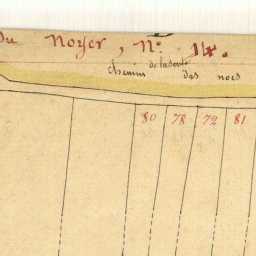 Du Noyer, N.º 14.
de la
chemin des noes
80 78 72 81